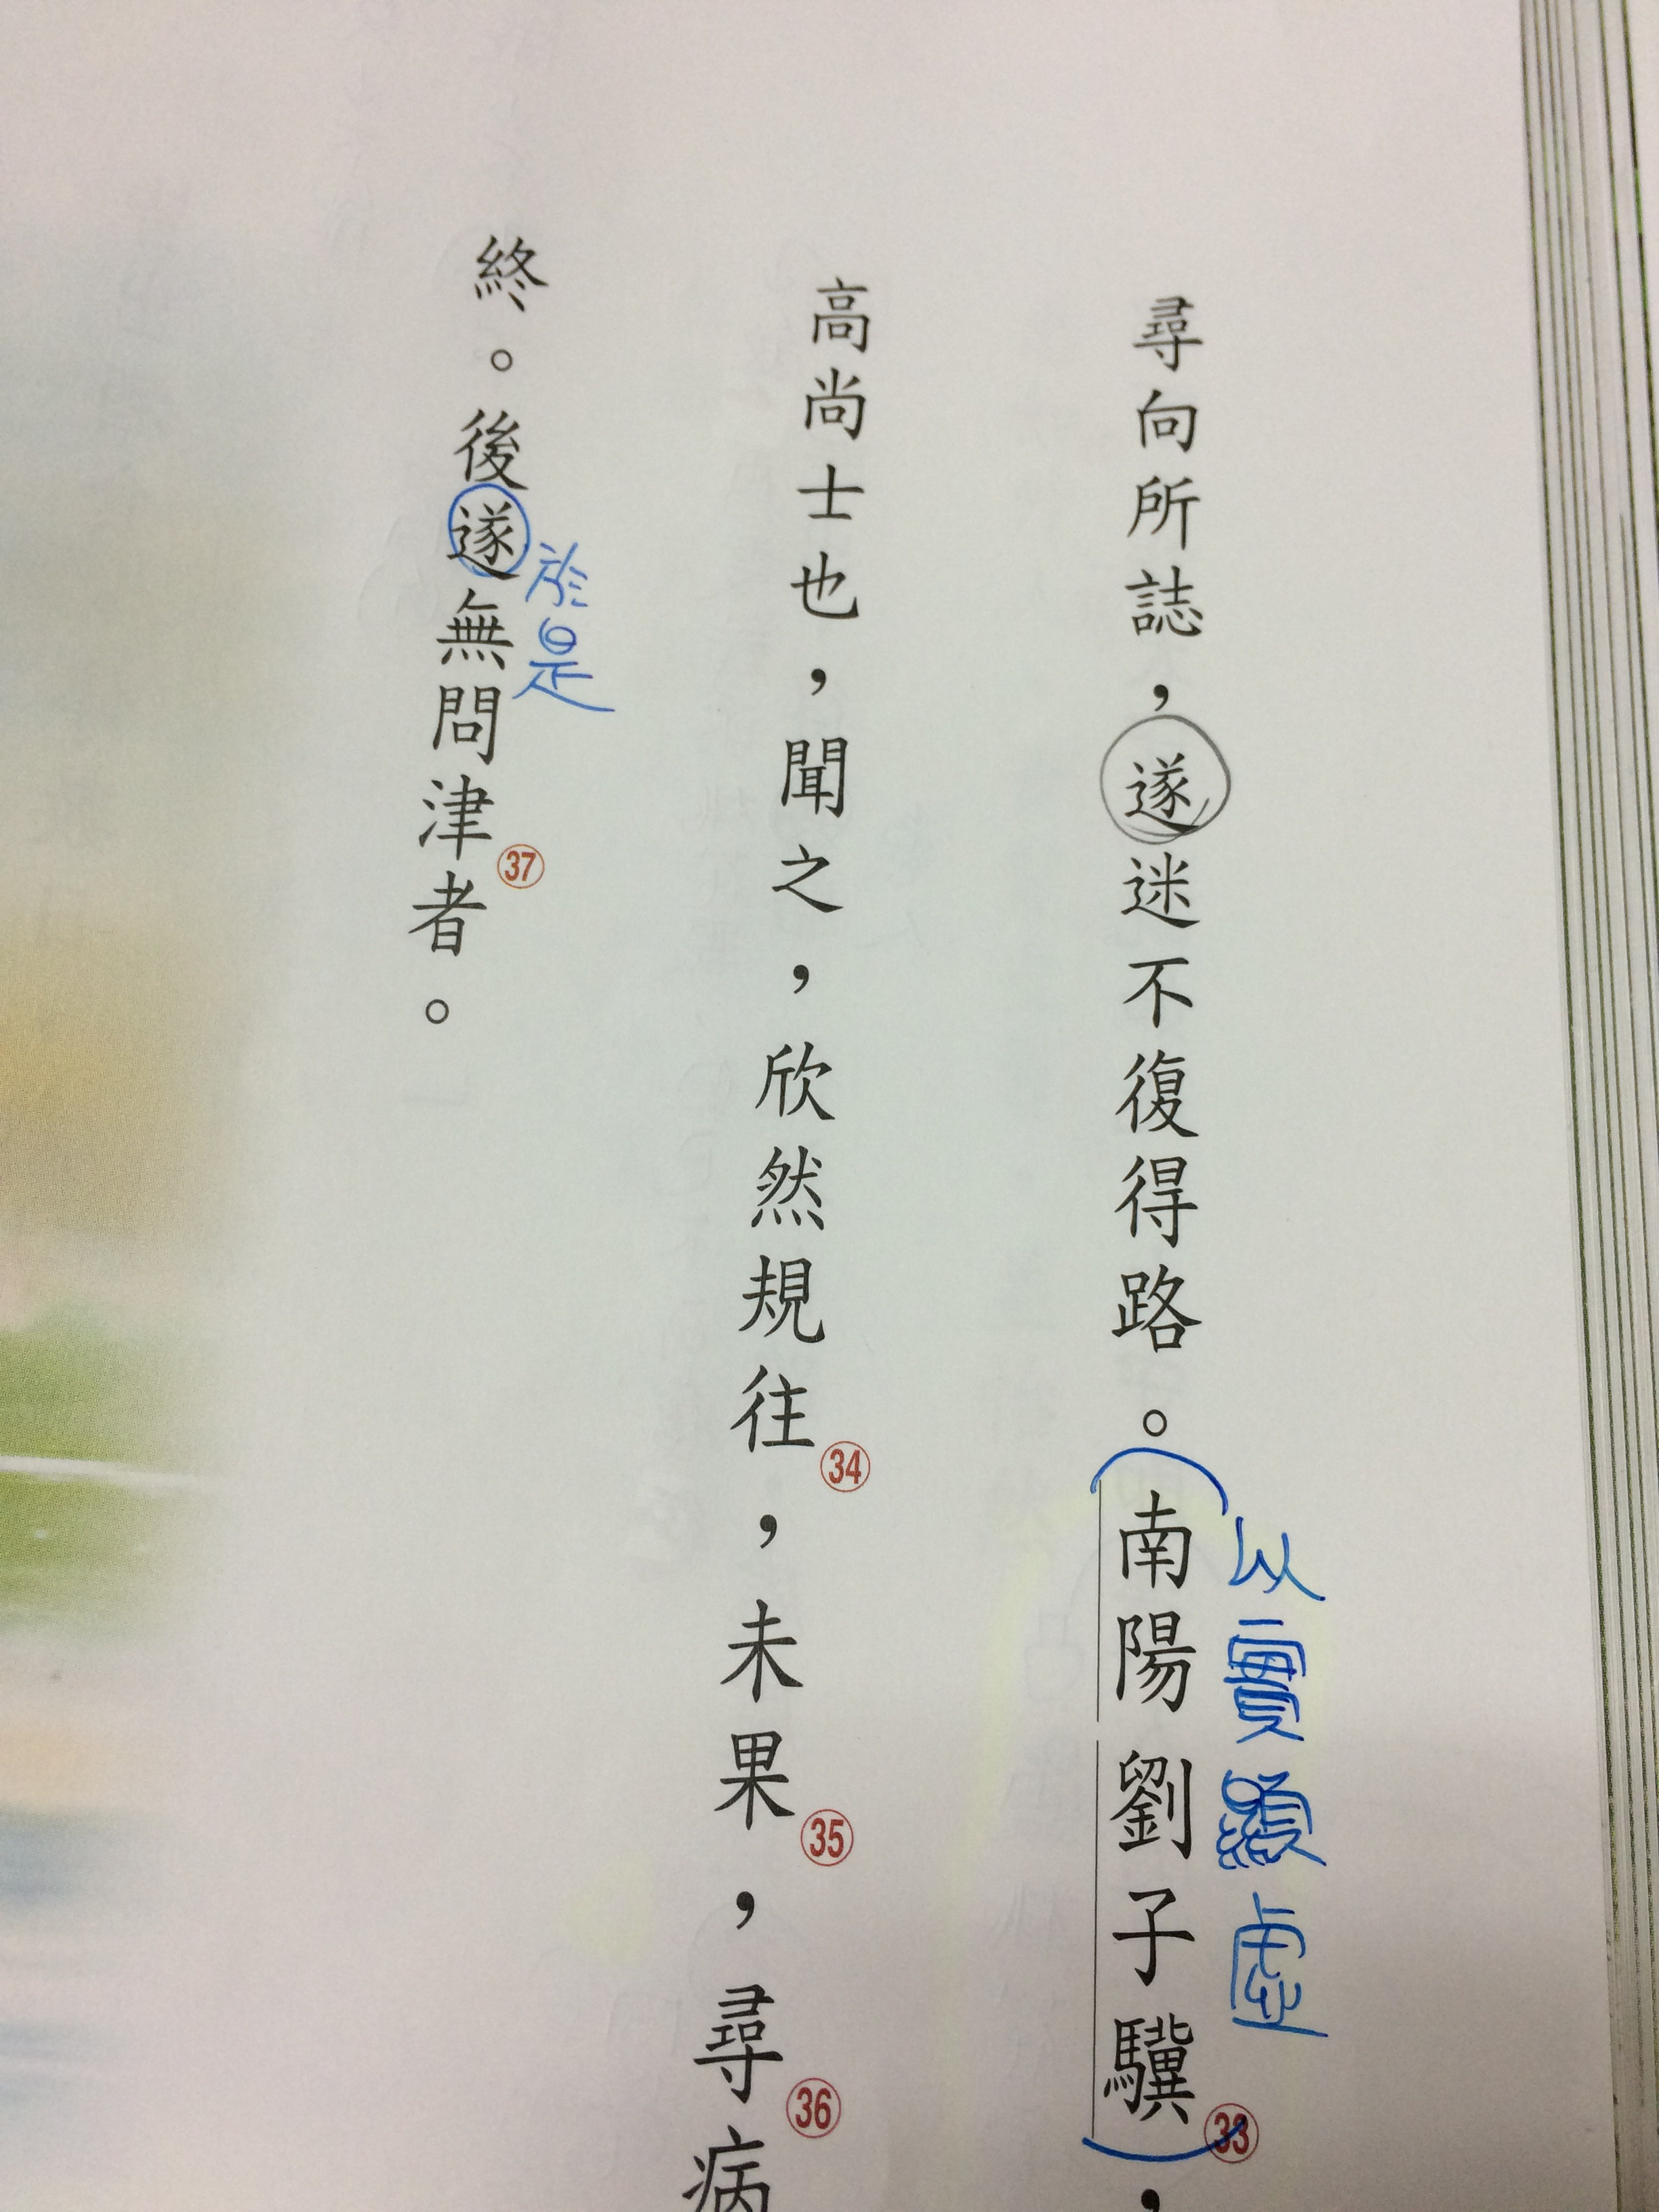 尋向所誌，遂迷不復得路。南陽劉子驥㉝，
以實顯虛
高尚士也，聞之，欣然規往㉞，未果㉟，尋㊱病
終。後遂無問津㊲者。
於是